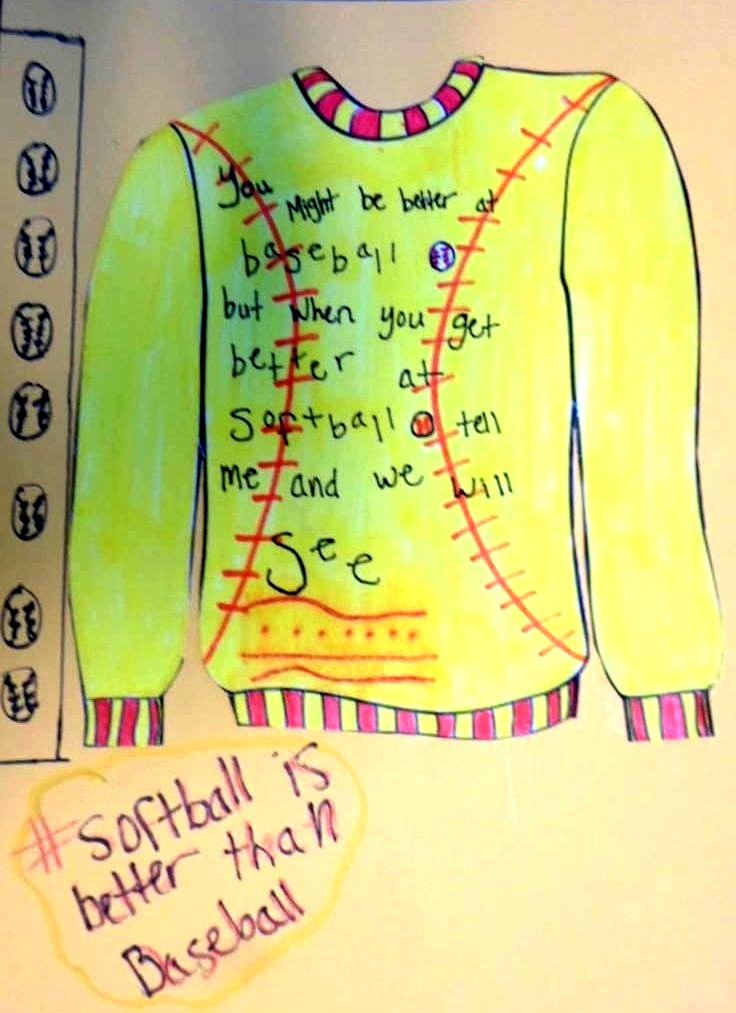 You Might be better at
baseball
but when you get
better at
softball tell
me and we will
See
#softball is
better than
Baseball